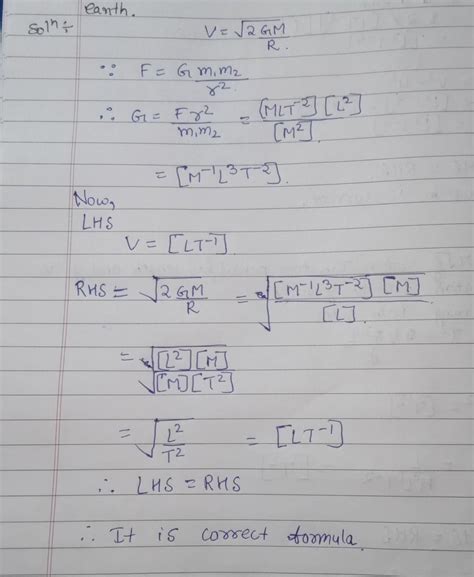 earth.
Solⁿ ÷ V = √2GM/R.
∵ F = G m₁m₂/r².
∴ G = Fr²/m₁m₂ = [MLT⁻²] [L²]/[M²]
= [M⁻¹L³T⁻²].
Now,
LHS
V = [LT⁻¹].
RHS = √2GM/R = √[M⁻¹L³T⁻²] [M]/[L].
= √[L²] [M]/[M] [T²]
= √L²/T² = [LT⁻¹]
∴ LHS = RHS
∴ It is correct formula.